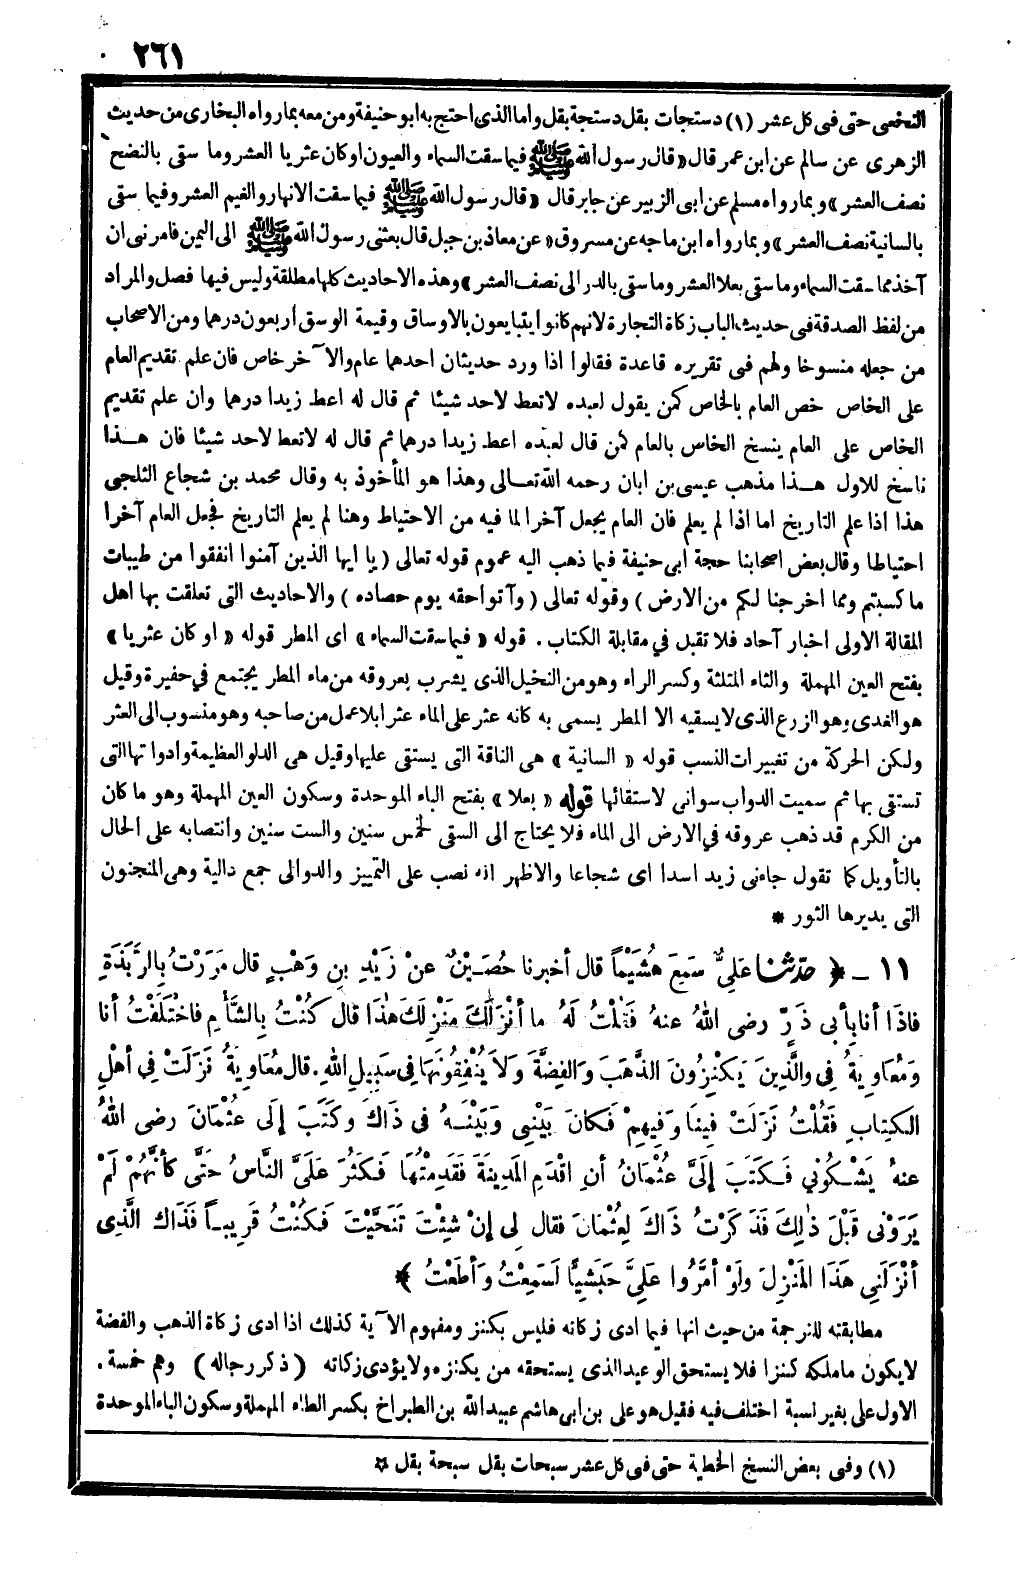 ٢٦١
النخعى حتى فى كل عشر (١) دستجات بقل دستجة بقل واما الذى احتج به ابو حنيفة ومن معه بما رواه البخارى من حديث
الزهرى عن سالم عن ابن عمر قال « قال رسول الله ﷺ فيما سقت السماء والعيون او كان عثريا العشر وما سقى بالنضح
نصف العشر » وبما رواه مسلم عن ابى الزبير عن جابر قال « قال رسول الله ﷺ فيما سقت الانهار والغيم العشر وفيما سقى
بالسانية نصف العشر » وبما رواه ابن ماجه عن مسروق « عن معاذ بن جبل قال بعثنى رسول الله ﷺ الى اليمن فامرنى ان
آخذ مما سقت السماء وما سقى بعلا العشر وما سقى بالدرالى نصف العشر » وهذه الاحاديث كلها مطلقة وليس فيها فصل والمراد
من لفظ الصدقة فى حديث الباب زكاة التجارة لانهم كانوا يتبايعون بالاوساق وقيمة الوسق أربعون درهما ومن الاصحاب
من جعله منسوخا ولهم فى تقريره قاعدة فقالوا اذا ورد حديثان احدهما عام والآخر خاص فان علم تقديم العام
على الخاص خص العام بالخاص كمن يقول لعبده لاتعط لاحد شيئا ثم قال له اعط زيدا درهما وان علم تقديم
الخاص على العام ينسخ الخاص بالعام كمن قال لعبده اعط زيدا درهما ثم قال له لاتعط لاحد شيئا فان هذا
ناسخ للاول هذا مذهب عيسى بن ابان رحمه الله تعالى وهذا هو المأخوذ به وقال محمد بن شجاع الثلجى
هذا اذا علم التاريخ اما اذا لم يعلم فان العام يجعل آخرا لما فيه من الاحتياط وهنا لم يعلم التاريخ فجعل العام آخرا
احتياطا وقال بعض اصحابنا حجة ابى حنيفة فيما ذهب اليه عموم قوله تعالى (يا ايها الذين آمنوا انفقوا من طيبات
ما كسبتم ومما اخرجنا لكم من الارض) وقوله تعالى (وآتوا حقه يوم حصاده) والاحاديث التى تعلقت بها اهل
المقالة الاولى اخبار آحاد فلا تقبل في مقابلة الكتاب . قوله « فيما سقت السماء » اى المطر قوله « او كان عثريا »
بفتح العين المهملة والثاء المثلثة وكسر الراء وهو من النخيل الذى يشرب بعروقه من ماء المطر يجتمع في حفيرة وقيل
هو العذى وهو الزرع الذى لا يسقيه الا المطر يسمى به كانه عثر على الماء عثرا بلا عمل من صاحبه وهو منسوب الى العثر
ولكن الحركة من تغييرات النسب قوله « السانية » هى الناقة التى يستقى عليها وقيل هى الدلو العظيمة وادواتها التى
تستقى بها ثم سميت الدواب سوانى لاستقائها قوله « بعلا » بفتح الباء الموحدة وسكون العين المهملة وهو ما كان
من الكرم قد ذهب عروقه في الارض الى الماء فلا يحتاج الى السقى الخمس سنين والست سنين وانتصابه على الحال
بالتأويل كما تقول جاءنى زيد اسدا اى شجاعا والاظهر انه نصب على التمييز والدوالى جمع دالية وهى المنجنون
التى يديرها الثور *
١١ ـ ﴿ حدثنا عَلِيٌّ سَمِعَ هُشَيْمًا قال أخبرنا حُصَيْنٌ عنْ زَيْدِ بنِ وَهْبٍ قال مَرَرْتُ بِالرَّبَذَةِ
فاذَا أنا بِأَبى ذَرٍّ رضى اللهُ عنهُ فَقُلْتُ لَهُ ما أنْزَلَكَ مَنْزِلَكَ هٰذَا قال كُنْتُ بِالشَّأْمِ فاخْتَلَفْتُ أنا
وَمُعَاوِيَةُ فِى والَّذِينَ يَكْنِزُونَ الذَّهَبَ وَالفِضَّةَ وَلاَ يُنْفِقُونَهَا فِى سَبِيلِ اللهِ . قال مُعَاوِيَةُ نَزَلَتْ فِي أهْلِ
الكِتابِ فَقُلْتُ نَزَلَتْ فِينَا وَفِيهِمْ فَكانَ بَيْنِى وَبَيْنَهُ فى ذَاكَ وكَتَبَ إلَى عُثْمَانَ رضى اللهُ
عنهُ يَشْكُونِي فَكَتَبَ إلَىَّ عُثْمَانُ أنِ اقْدَمِ المَدِينَةَ فَقَدِمْتُهَا فَكَثُرَ عَلَىَّ النَّاسُ حَتَّى كأنَّهُمْ لَمْ
يَرَوْنى قَبْلَ ذٰلِكَ فَذَكَرْتُ ذَاكَ لِعُثْمَانَ فقال لِى إنْ شِئْتَ تَنَحَّيْتَ فَكُنْتُ قَرِيبًا فَذَاكَ الَّذِى
أنْزَلَنِي هَذَا المَنْزِلَ ولَوْ أمَّرُوا عَلَىَّ حَبَشِيًّا لَسَمِعْتُ وَأطَعْتُ ﴾
مطابقته للترجمة من حيث انها فيما ادى زكاته فليس بكنز ومفهوم الآية كذلك اذا ادى زكاة الذهب والفضة
لايكون ماملكه كنزا فلا يستحق الوعيد الذى يستحقه من يكنزه ولا يؤدى زكاته (ذكر رجاله) وهم خمسة .
الاول على بغير نسبة اختلف فيه فقيل هو على بن ابى هاشم عبيد الله بن الطبراخ بكسر الطاء المهملة وسكون الباء الموحدة
(١) وفى بعض النسخ الخطية حتى فى كل عشر سبحات بقل سبحة بقل *